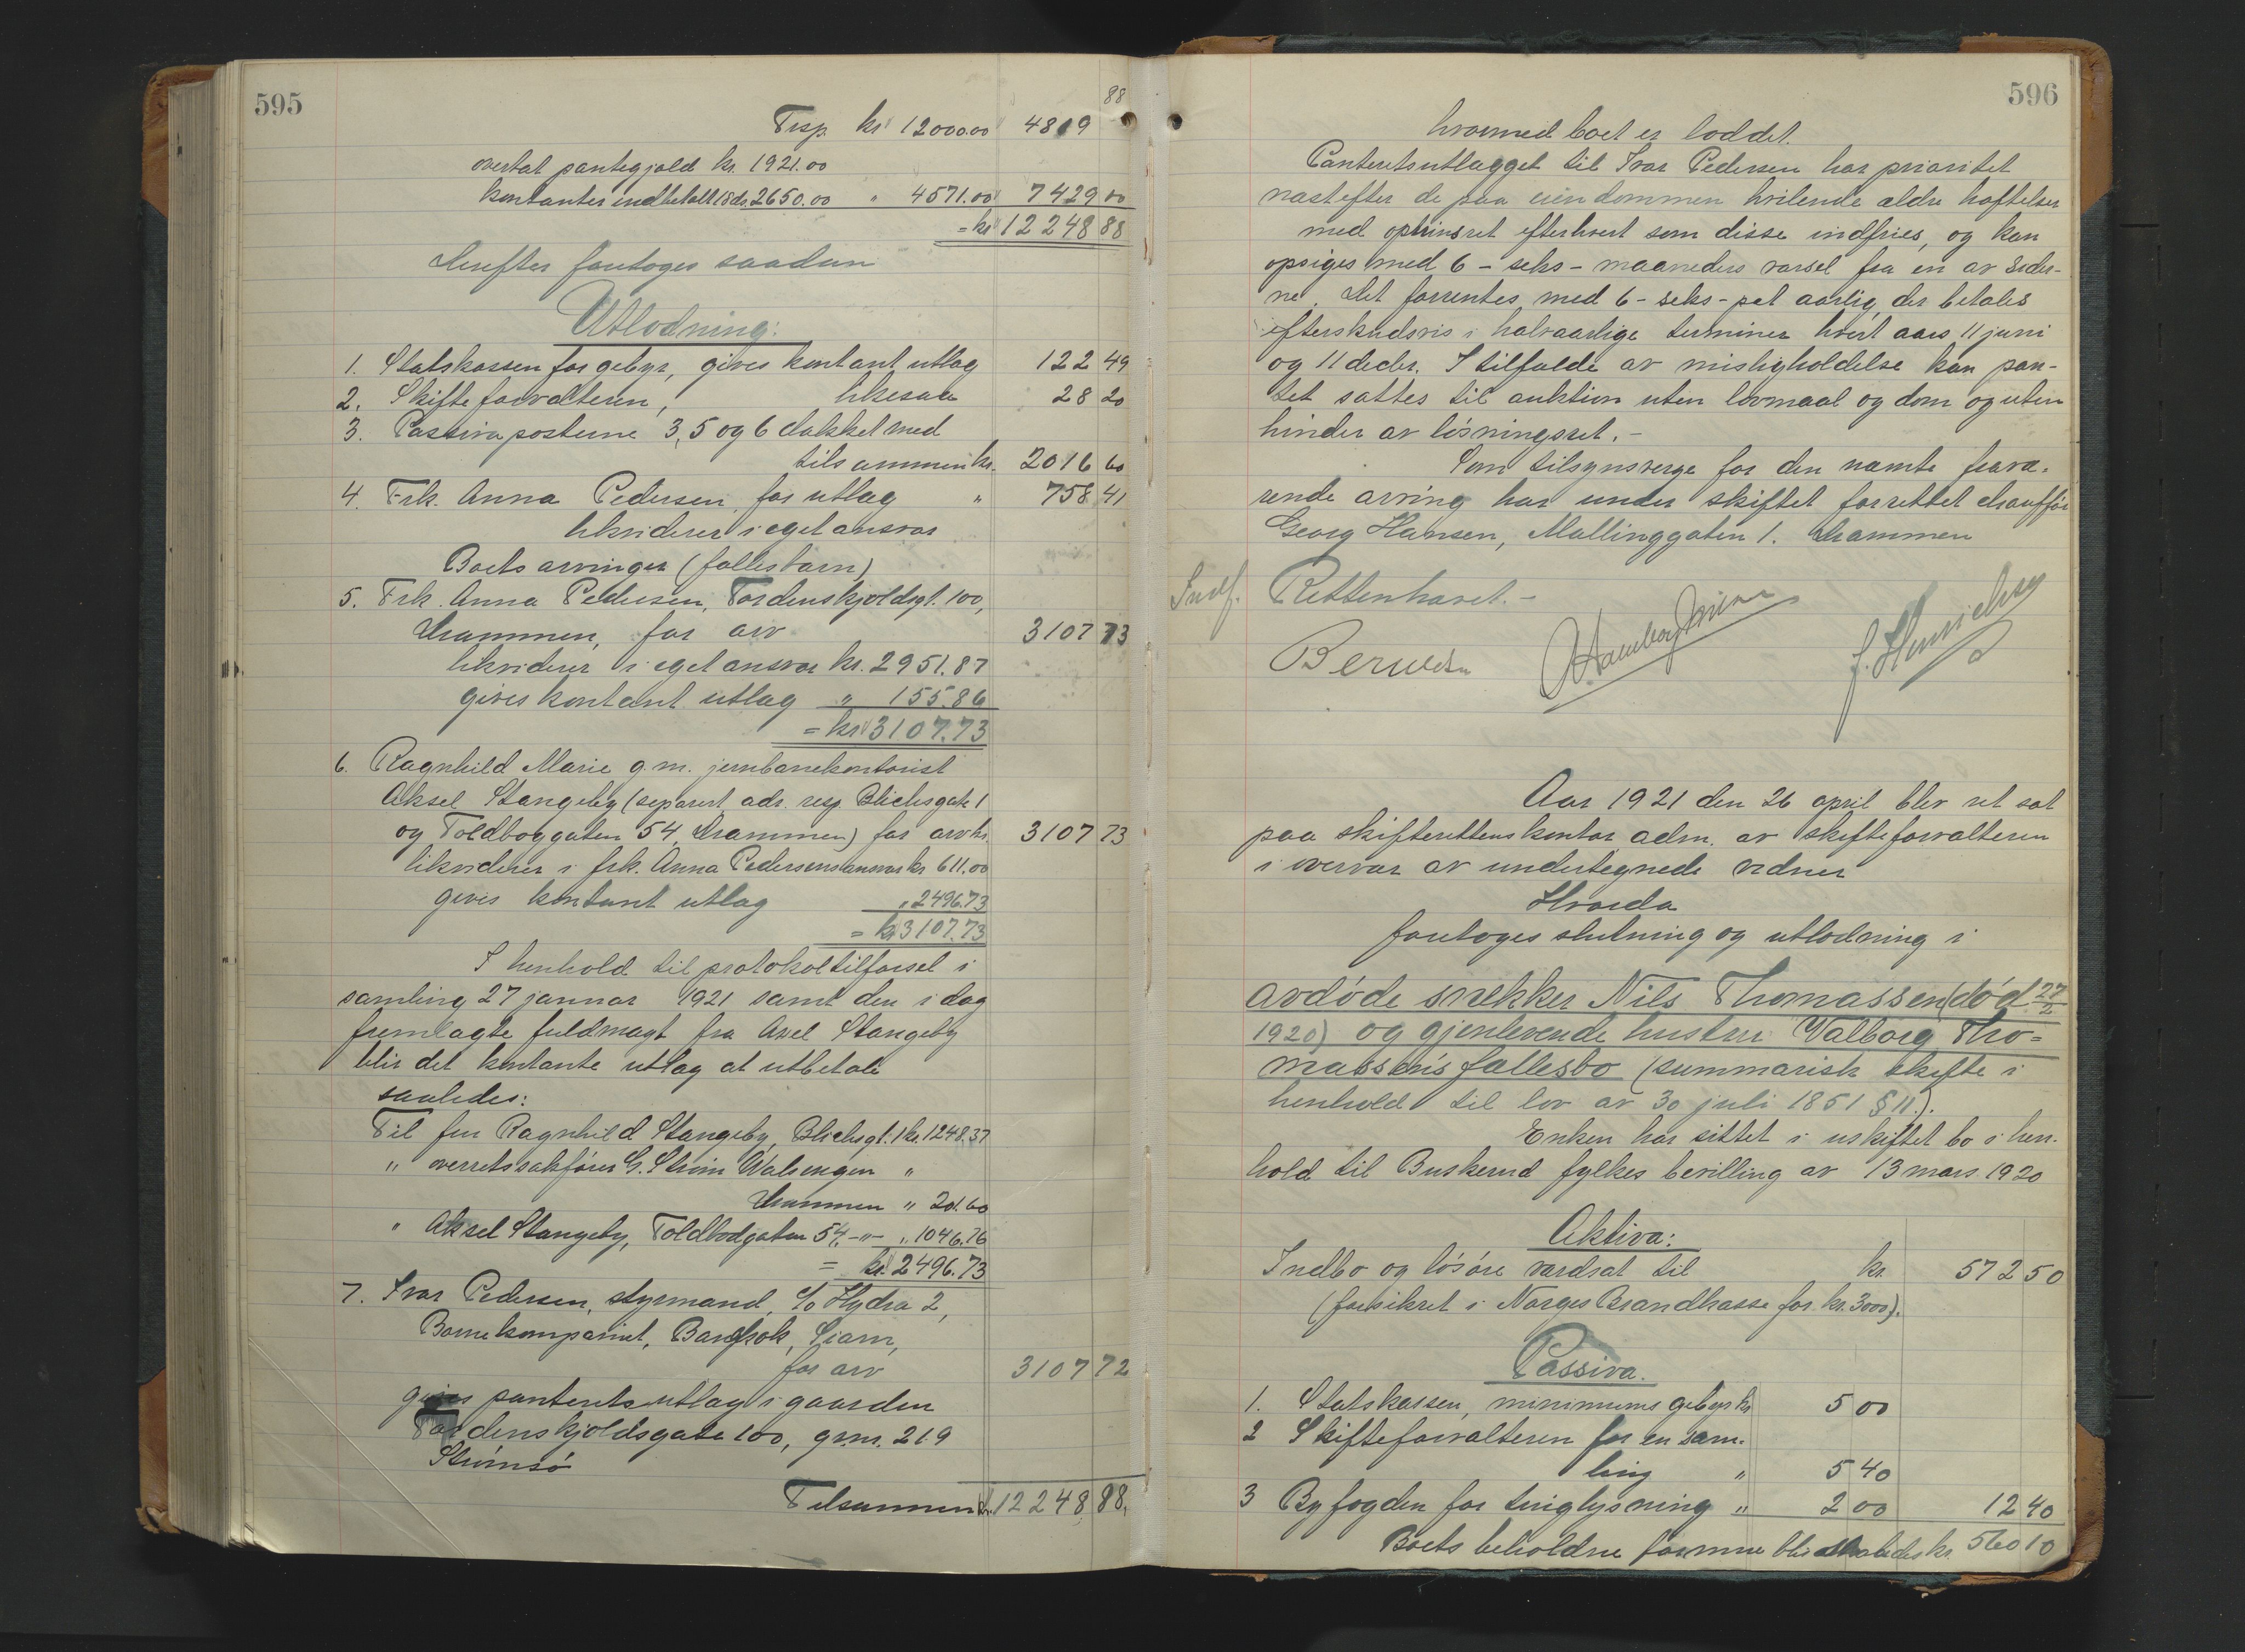 595
Trsp. kr 12000.00 4819 88
overtat pantegjæld kr. 1921.00
kontanter indbetalt 18 ds. 2650.00 " 4571.00 7429 00
= kr 12248 88
Derefter foretoges saadan
Utlodning:
1. Statskassen for gebyr, gives kontant utlæg 122 49
2. Skifteforvalteren, likesaa 28 20
3. Passivaposterne 3, 5 og 6 dækket med
tilsammen kr. 2016 60
4. Frk. Anna Pedersen, for utlæg " 758 41
likviderer i eget ansvar
Boets arvinger (fællesbarn)
5. Frk. Anna Pedersen, Tordenskjoldsgt. 100,
Drammen, for arv 3107 73
likviderer i eget ansvar kr. 2951.87
gives kontant utlæg " 155.86
= kr 3107.73
6. Ragnhild Marie g.m. jernbanekontorist
Aksel Stangeby (separert adr. resp. Blichsgate 1
og Toldboggaten 54, Drammen) for arv kr. 3107 73
likviderer i frk. Anna Pedersens ansvar kr 611.00
gives kontant utlæg " 2496.73
= kr 3107.73
I henhold til protokoltilførsel i
samling 27 januar 1921 samt den i dag
fremlagte fuldmagt fra Axel Stangeby
blir det kontante utlæg at utbetale
saaledes:
Til fru Ragnhild Stangeby, Blichsgt. 1 kr. 1248.37
" overretssakfører G. Strøm Walsengen "
Drammen " 201.60
" Aksel Stangeby, Toldbodgaten 54, -"- " 1046.76
= kr. 2496.73
7. Ivar Pedersen, styrmand, c/o Hydra 2,
Bornekompaniet, Bangkok, Siam,
for arv 3107 72
gives panteretsutlæg i gaarden
Tordenskjoldsgate 100, gr.nr. 219
Strømsø
Tilsammen kr. 12248 88.
596
hvormed boet er loddet.
Panteretsutlægget til Ivar Pedersen har prioritet
næstefter de paa eiendommen hvilende ældre hæftelser
med oprinsret efterhvert som disse indfries, og kan
opsiges med 6 - seks - maaneders varsel fra en av sider-
ne. Det forrentes med 6 - seks - pct aarlig, der betales
efterskudsvis i halvaarlige terminer hvert aars 11 juni
og 11 decbr. I tilfælde av misligholdelse kan pan-
tet sættes til auktion uten lovmaal og dom og uten
hinder av løsningsret. -
Som tilsynsverge for den nævnte fravæ-
rende arving har under skiftet forrettet chauffør
Georg Hansen, Mallinggaten 1. Drammen
Indf. Retten hævet. -
Aar 1921 den 26 april blev ret sat
paa skifterettens kontor adm. av skifteforvalteren
i overvær av undertegnede vidner
Hvorda
foretoges slutning og utlodning i
avdøde snekker Nils Thomassen (død 27/2
1920) og gjenlevende hustru Valborg Tho-
massens fællesbo (summarisk skifte i
henhold til lov av 30 juli 1851 § 11.).
Enken har sittet i uskiftet bo i hen-
hold til Buskerud fylkes bevilling av 13 mars 1920
Aktiva:
Indbo og løsøre værdsat til kr. 572 50
(forsikret i Norges Brandkasse for kr. 3000).
Passiva.
1. Statskassen, minimumsgebyr kr 5 00
2 Skifteforvalteren for en sam-
ling " 5 40
3 Byfogden for tinglysning " 2 00 12 40
Boets beholdne formue blir saaledes kr. 560 10